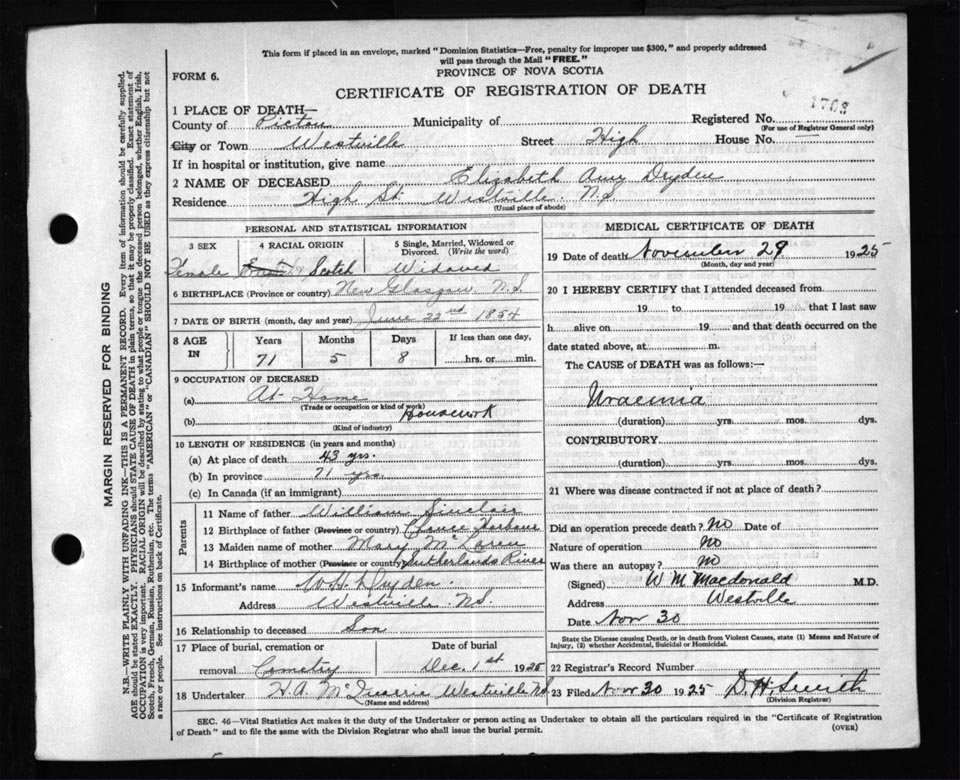 This form if placed in an envelope, marked "Dominion Statistics—Free, penalty for improper use $300," and properly addressed
will pass through the Mail "FREE."
FORM 6.
PROVINCE OF NOVA SCOTIA
CERTIFICATE OF REGISTRATION OF DEATH
1 PLACE OF DEATH—
County of Pictou Municipality of Registered No.
(For use of Registrar General only)
City or Town Westville Street High House No. —
If in hospital or institution, give name
2 NAME OF DECEASED Elizabeth Amy Dryden
Residence High St. Westville N.S.
(Usual place of abode)
PERSONAL AND STATISTICAL INFORMATION
3 SEX 4 RACIAL ORIGIN 5 Single, Married, Widowed or Divorced. (Write the word)
Female Scotch Widowed
6 BIRTHPLACE (Province or country) New Glasgow N.S.
7 DATE OF BIRTH (month, day and year) June 22nd 1854
8 AGE IN Years Months Days If less than one day,
71 5 8 hrs. or min.
9 OCCUPATION OF DECEASED
(a) At Home
(Trade or occupation or kind of work)
(b) Housework
(Kind of industry)
10 LENGTH OF RESIDENCE (in years and months)
(a) At place of death 43 yrs.
(b) In province 71 yrs.
(c) In Canada (if an immigrant)
Parents
11 Name of father William Sinclair
12 Birthplace of father (Province or country) Chance Harbour
13 Maiden name of mother Mary McLaren
14 Birthplace of mother (Province or country) Sutherlands River
15 Informant's name W.H. Dryden.
Address Westville N.S.
16 Relationship to deceased Son
17 Place of burial, cremation or removal Date of burial
Cemetry Dec. 1st 1925
18 Undertaker H.A. Westville N.S.
(Name and address)
MEDICAL CERTIFICATE OF DEATH
19 Date of death November 29 1925
(Month, day and year)
20 I HEREBY CERTIFY that I attended deceased from
19 to 19 that I last saw
h alive on 19 and that death occurred on the
date stated above, at m.
The CAUSE OF DEATH was as follows:—
Uraemia
(duration) yrs. mos. dys.
CONTRIBUTORY
(duration) yrs. mos. dys.
21 Where was disease contracted if not at place of death?
Did an operation precede death? No Date of
Nature of operation No
Was there an autopsy? No
(Signed) W M Macdonald M.D.
Address Westville
Date Nov 30
State the Disease causing Death, or in death from Violent Causes, state (1) Means and Nature of
Injury, (2) whether Accidental, Suicidal or Homicidal.
22 Registrar's Record Number
23 Filed Nov 30 1925 D. H. Smith
(Division Registrar)
SEC. 46—Vital Statistics Act makes it the duty of the Undertaker or person acting as Undertaker to obtain all the particulars required in the "Certificate of Registration
of Death" and to file the same with the Division Registrar who shall issue the burial permit.
(OVER)
MARGIN RESERVED FOR BINDING
N.B.—WRITE PLAINLY WITH UNFADING INK—THIS IS A PERMANENT RECORD. Every item of information should be carefully supplied.
AGE should be stated EXACTLY. PHYSICIANS should STATE CAUSE OF DEATH in plain terms, so that it may be properly classified. Exact statement of
OCCUPATION is very important. RACIAL ORIGIN will be described by stating to what people or tongue the deceased person belonged, whether English, Irish,
Scotch, French, German, Russian, Ruthenian, etc. The terms "AMERICAN" or "CANADIAN" SHOULD NOT BE USED as they express citizenship but not
a race or people. See instructions on back of Certificate.